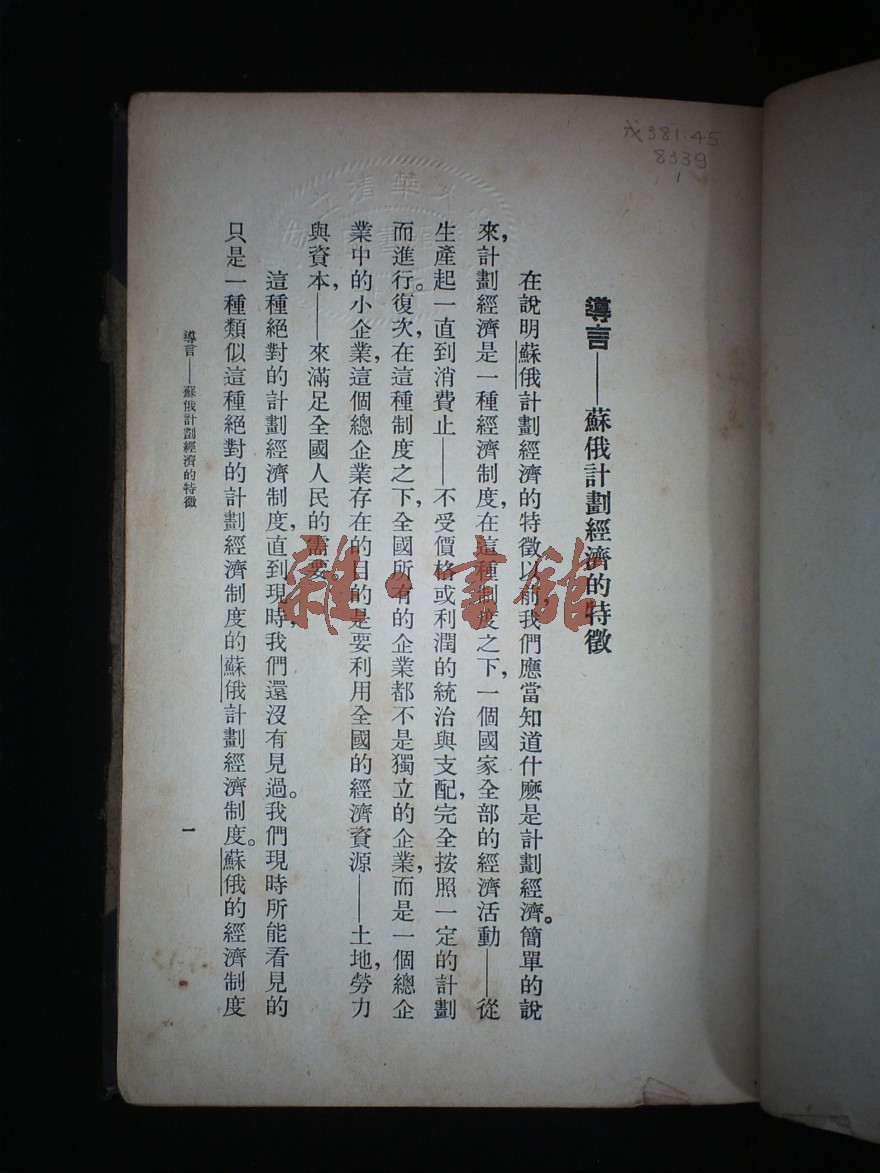 戎381.45
8339
1
導言——蘇俄計劃經濟的特徵
在說明蘇俄計劃經濟的特徵以前,我們應當知道什麽是計劃經濟。簡單的說
來,計劃經濟是一種經濟制度,在這種制度之下,一個國家全部的經濟活動——從
生產起一直到消費止——不受價格或利潤的統治與支配,完全按照一定的計劃
而進行。復次,在這種制度之下,全國所有的企業都不是獨立的企業,而是一個總企
業中的小企業,這個總企業存在的目的是要利用全國的經濟資源——土地,勞力
與資本,——來滿足全國人民的需要。
這種絕對的計劃經濟制度,直到現時,我們還沒有見過。我們現時所能看見的
只是一種類似這種絕對的計劃經濟制度的蘇俄計劃經濟制度。蘇俄的經濟制度
導言——蘇俄計劃經濟的特徵
一
雜·書館